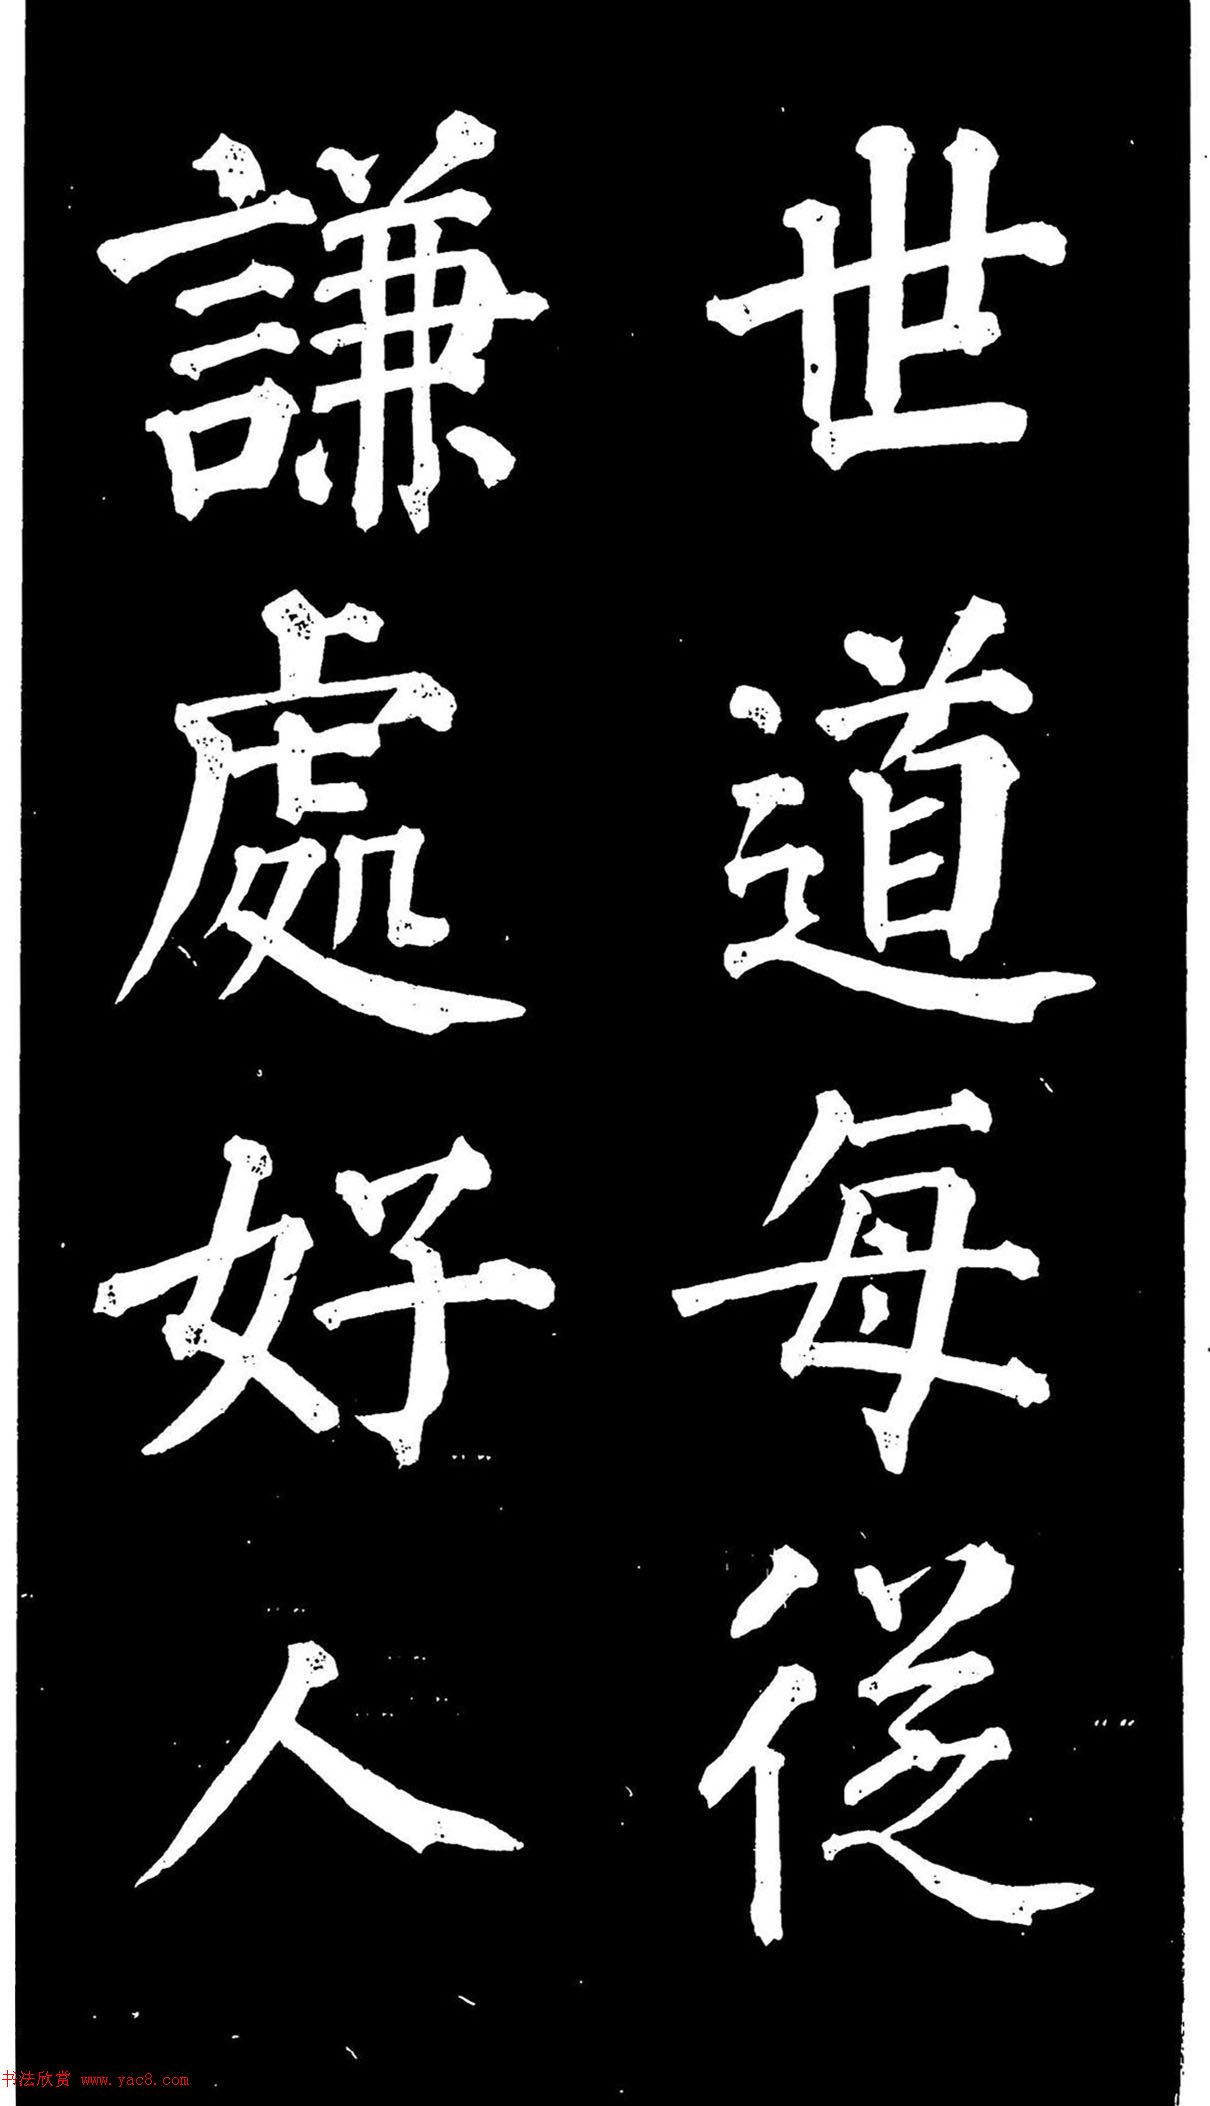 世道每從
謙處好人
书法欣赏 www.yac8.com